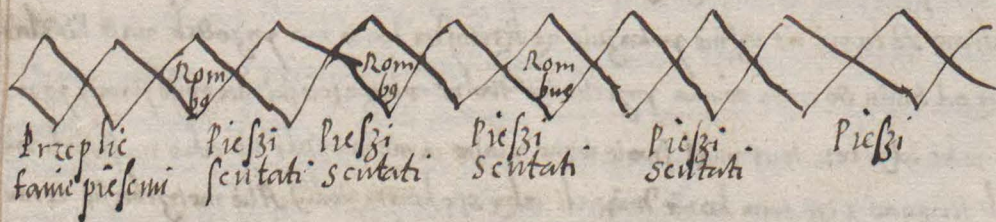 Rom
bꝯ
Rom
bꝯ
Rom
bus
Przeplie
tanie piesemi
Pieszi
scutati
Pieszi
scutati
Pieszi
scutati
Pieszi
scutati
Pieszi